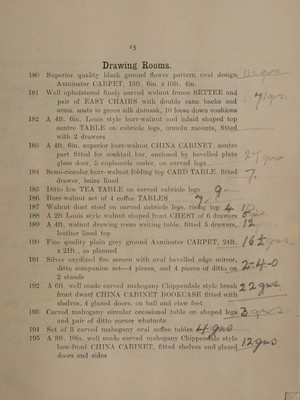 15
Drawing Rooms.
180 Superior quality black ground flower pattern oval design Axminster CARPET, 13ft. 6in. x 10ft. 4in. gns
181 Well upholstered finely carved walnut frame SETTEE and
pair of EASY CHAIRS with double cane backs and 71gns
arms, seats in green silk damask, 10 loose down cushions
182 A 4ft. 6in. Louis style burr-walnut and inlaid shaped top
centre TABLE on cabriole legs, ormolu mounts, fitted
with 2 drawers
183 A 4ft. 6in. superior burr-walnut CHINA CABINET, centre
part fitted for cocktail bar, enclosed by bevelled plate
glass door, 5 cupboards under, on carved legs 27 gns
184 Semi-circular burr-walnut folding top CARD TABLE, fitted 7.
drawer, baize lined
185 Ditto low TEA TABLE on carved cabriole legs 9 -
186 Burr-walnut set of 4 coffee TABLES 7
187 Walnut duet stool on carved cabriole legs, rising top 4 10
188 A 2ft Louis style walnut shaped front CHEST of 6 drawers
189 A 4ft. walnut drawing room writing table, fitted 5 drawers, 12
leather lined top
190 Fine quality plain grey Axminster CARPET, 24ft. 162 gns.
x 21ft., as planned
191 Silver oxydised fire screen with oval bevelled edge mirror,
ditto companion set—4 pieces, and 4 pieces of ditto on 2-4-0
2 stands
192 A 6ft. well made carved mahogany Chippendale style break
front dwarf CHINA CABINET BOOKCASE fitted with 22 gns.
shelves, 4 glazed doors, on ball and claw feet
193 Carved mahogany circular occasional table on shaped legs 3 gns
and pair of ditto corner whatnots
194 Set of 3 carved mahogany oval coffee tables 4 gns
195 A 3ft. 10in. well made carved mahogany Chippendale style
bow-front CHINA CABINET, fitted shelves and glazed 12 gns
doors and sides